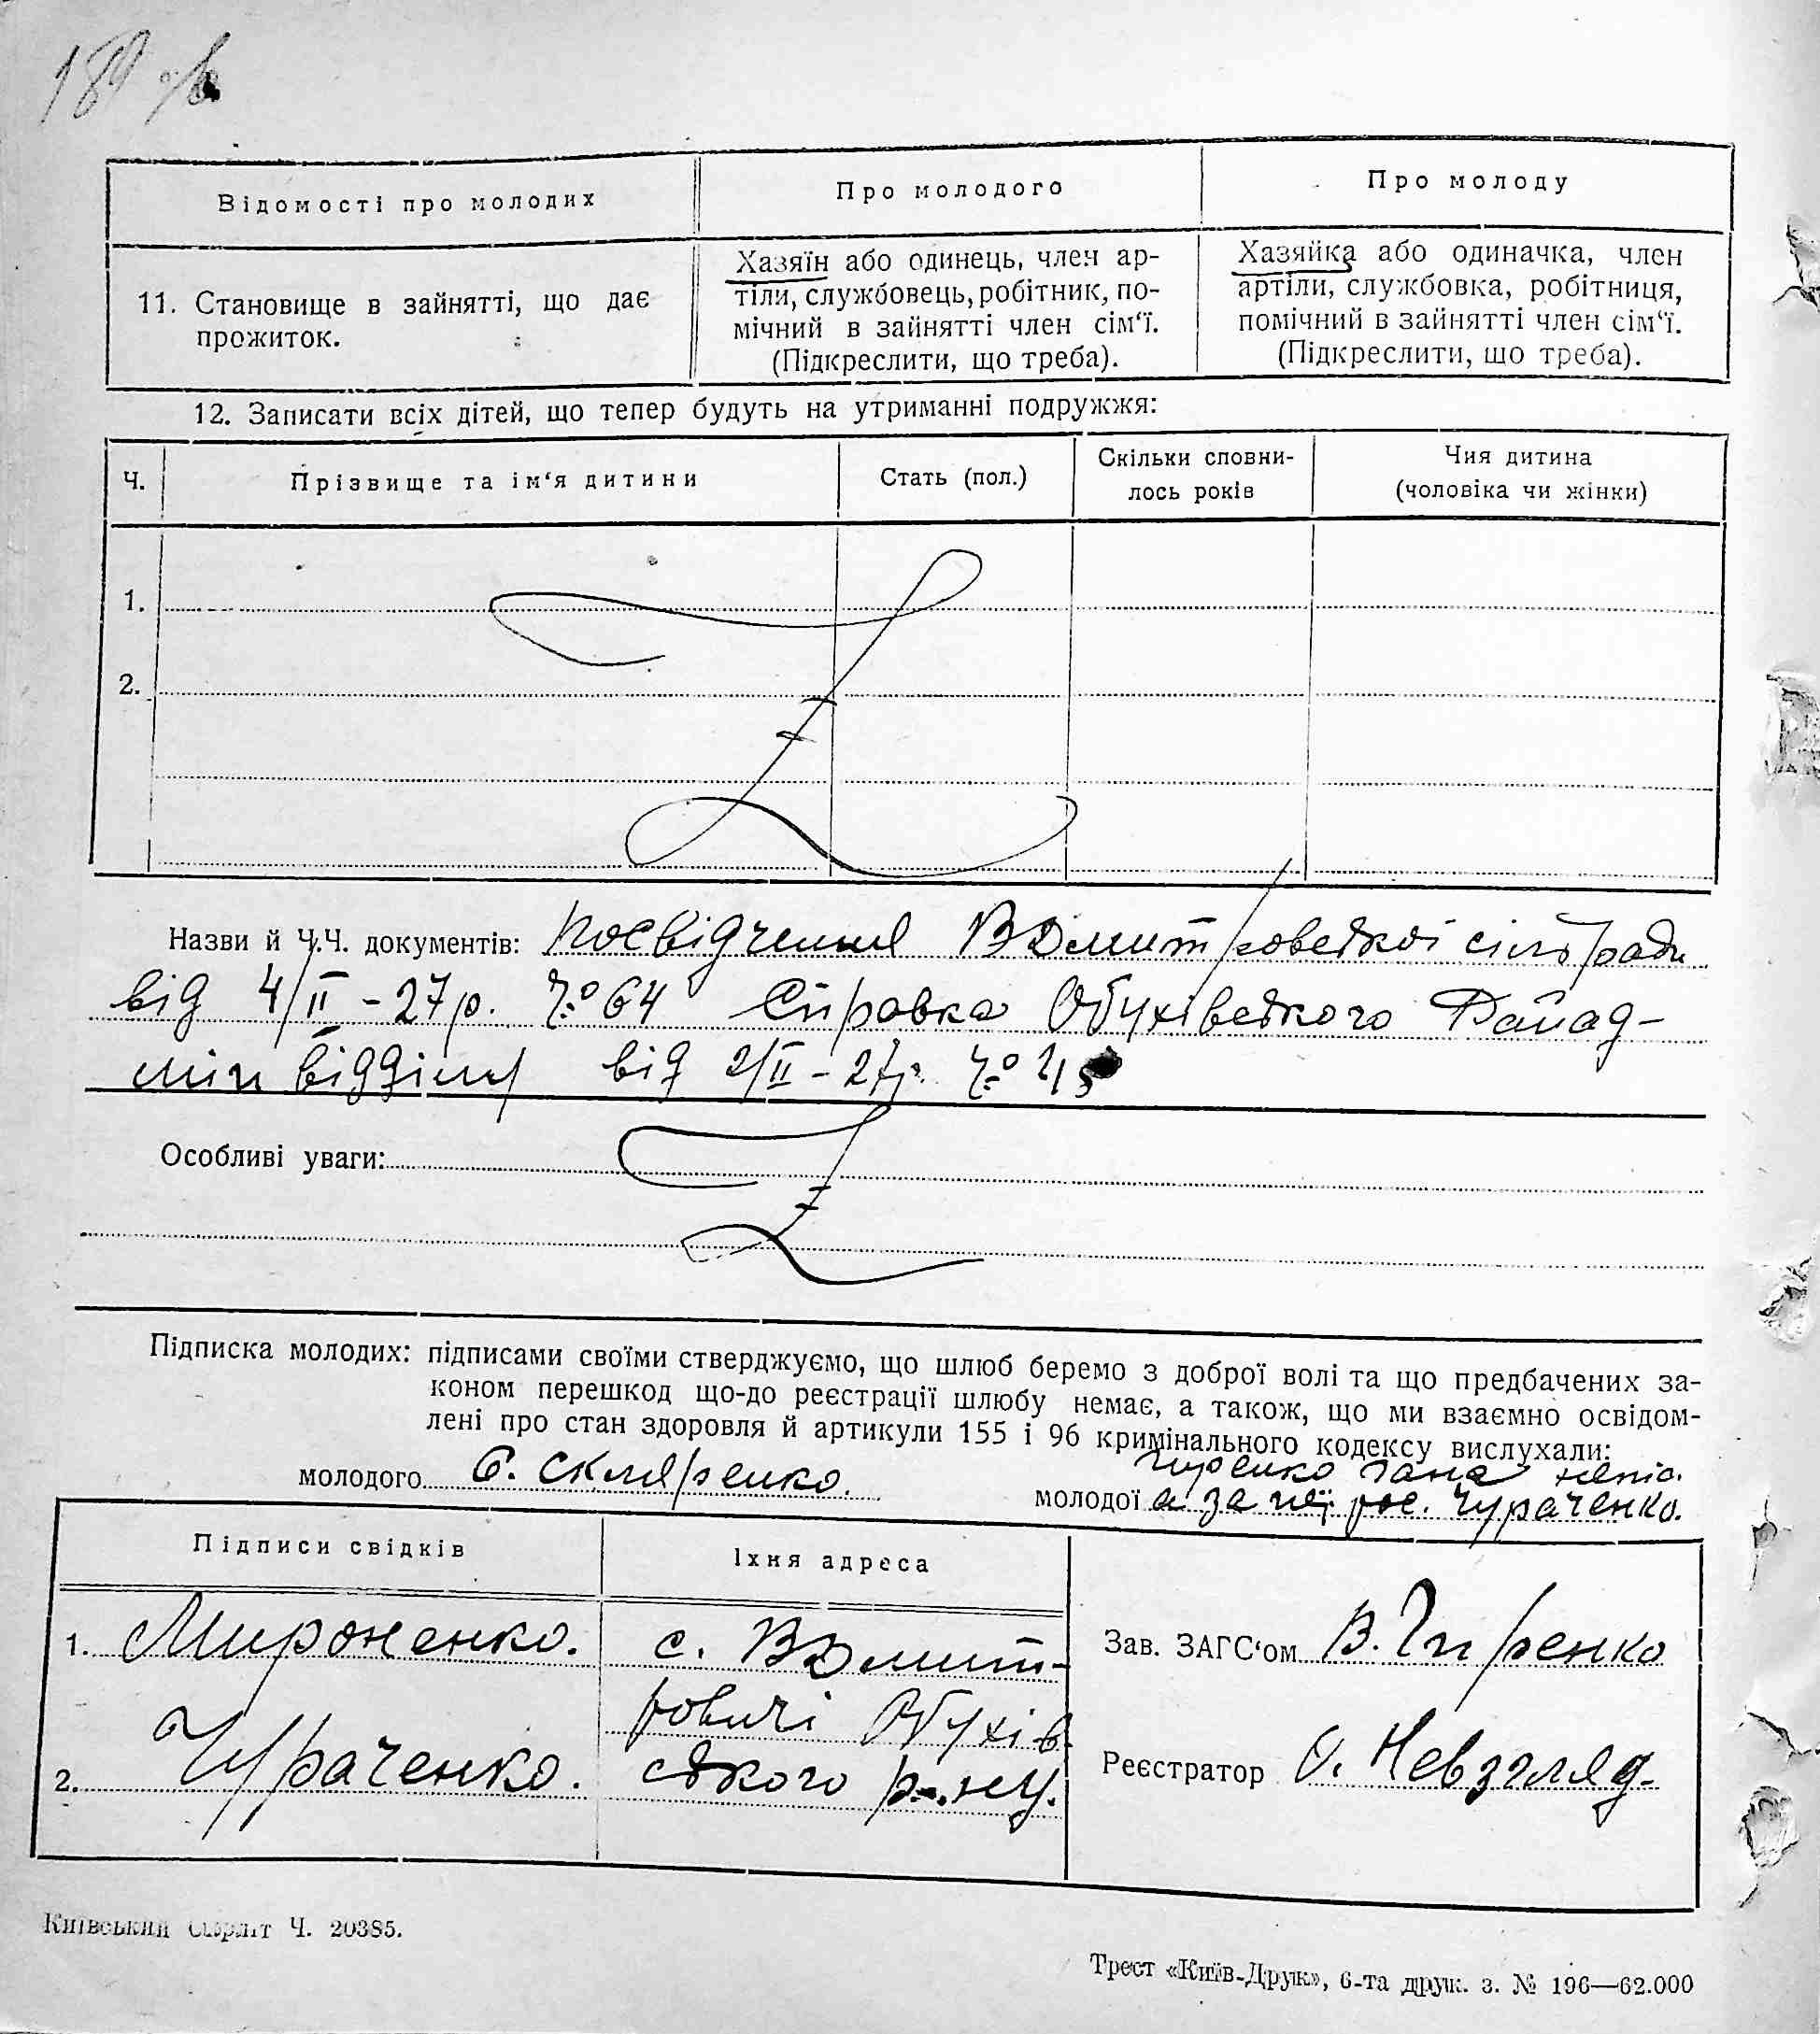 189 об
Відомості про молодих
Про молодого
Про молоду
11. Становище в зайнятті, що дає
прожиток.
Хазяїн або одинець, член ар-
тіли, службовець, робітник, по-
мічний в зайнятті член сім'ї.
(Підкреслити, що треба).
Хазяйка або одиначка, член
артіли, службовка, робітниця,
помічний в зайнятті член сім'ї.
(Підкреслити, що треба).
12. Записати всіх дітей, що тепер будуть на утриманні подружжя:
Ч.
Прізвище та ім'я дитини
Стать (пол.)
Скільки сповни-
лось років
Чия дитина
(чоловіка чи жінки)
1.
2.
Назви й Ч.Ч. документів: Посвідчення ВДмитровської сільради
від 4/II – 27 р. Ч° 64 Справка Обухівського Райад-
мін відділу від 2/II – 27 р. Ч°
Особливі уваги:
Підписка молодих: підписами своїми стверджуємо, що шлюб беремо з доброї волі та що предбачених за-
коном перешкод що-до реєстрації шлюбу немає, а також, що ми взаємно освідом-
лені про стан здоровля й артикули 155 і 96 кримінального кодексу вислухали:
молодого Є. Скляренко.
Гиренко Гана непис.
молодої а за неї рос. Чураченко.
Підписи свідків
Їхня адреса
1. Мироненко.
с. ВДмит-
ровичі Обухів
2. Чураченко.
ського р-ну.
Зав. ЗАГС'ом В. Гиренко
Реєстратор О. Невзгляд.
Київський Окрліт Ч. 20385.
Трест «Київ-Друк», 6-та друк. з. № 196—62.000